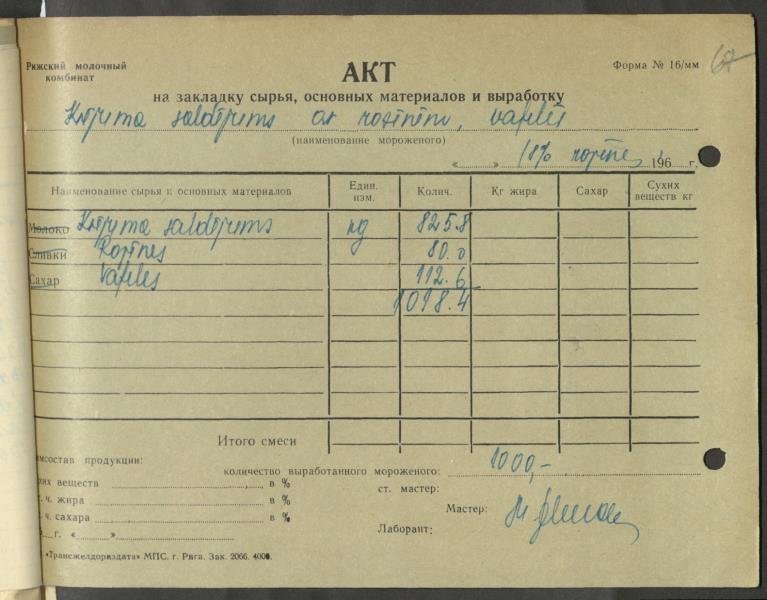 Рижский молочный
комбинат
Форма № 16/мм
67
АКТ
на закладку сырья, основных материалов и выработку
Krējuma saldējums ar rozīnēm, vafelēs
(наименование мороженого)
« » (8% rozīnes) 196 г.
Наименование сырья и основных материалов Един. изм. Колич. Кг жира Сахар Сухих веществ кг
Молоко Krējuma saldējums kg 825.8
Сливки Rozīnes 80.0
Сахар Vafeles 112.6
1018.4
Итого смеси
состав продукции:
количество выработанного мороженого: 1000,-
их веществ в %
ст. мастер:
ч. жира в %
Мастер:
ч. сахара в %
Лаборант:
г. « »
«Трансжелдориздата» МПС. г. Рига. Зак. 2066. 4000.